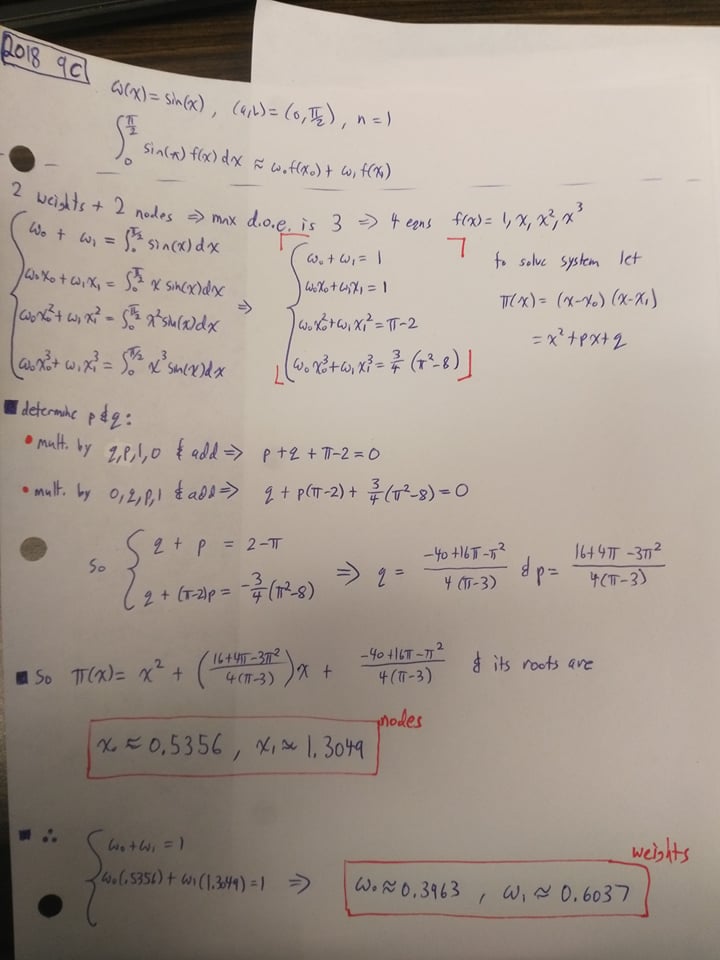 2018 9c
ω(x) = sin(x), (a,b) = (0, π/2), n = 1
∫₀^{π/2} sin(x) f(x) dx ≈ ω₀f(x₀) + ω₁f(x₁)
2 weights + 2 nodes ⇒ max d.o.e. is 3 ⇒ 4 eqns f(x) = 1, x, x², x³
ω₀ + ω₁ = ∫₀^{π/2} sin(x) dx
ω₀x₀ + ω₁x₁ = ∫₀^{π/2} x sin(x) dx
ω₀x₀² + ω₁x₁² = ∫₀^{π/2} x² sin(x) dx
ω₀x₀³ + ω₁x₁³ = ∫₀^{π/2} x³ sin(x) dx
⇒
ω₀ + ω₁ = 1
ω₀x₀ + ω₁x₁ = 1
ω₀x₀² + ω₁x₁² = π-2
ω₀x₀³ + ω₁x₁³ = 3/4 (π²-8)
to solve system let
π(x) = (x-x₀)(x-x₁)
= x² + px + q
determine p & q:
• mult. by q, p, 1, 0 & add ⇒ p + q + π-2 = 0
• mult. by 0, q, p, 1 & add ⇒ q + p(π-2) + 3/4 (π²-8) = 0
So { q + p = 2-π
q + (π-2)p = -3/4 (π²-8)
⇒ q = (-40+16π-π²)/(4(π-3)) & p = (16+4π-3π²)/(4(π-3))
So π(x) = x² + ((16+4π-3π²)/(4(π-3)))x + (-40+16π-π²)/(4(π-3)) & its roots are
nodes
x₀ ≈ 0.5356, x₁ ≈ 1.3049
∴ { ω₀ + ω₁ = 1
ω₀(.5356) + ω₁(1.3049) = 1 ⇒
weights
ω₀ ≈ 0.3963, ω₁ ≈ 0.6037